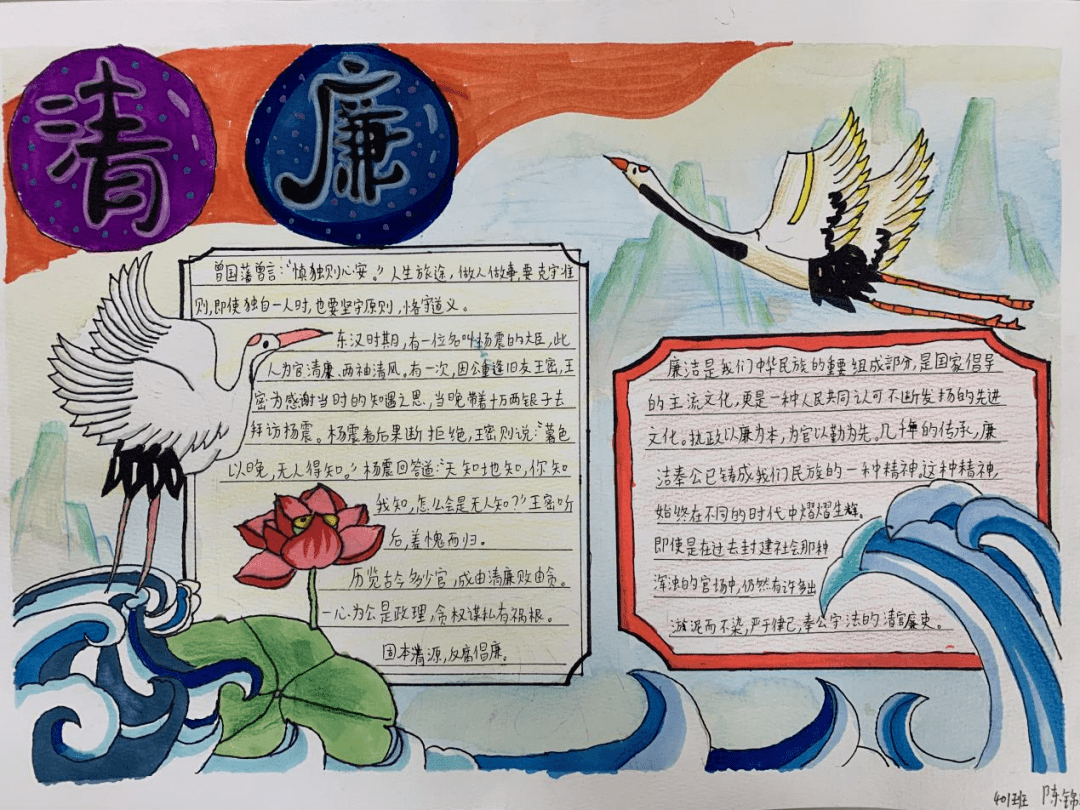 清廉
曾国藩曾言:“慎独则心安。”人生旅途,做人做事,要克守准
则,即使独自一人时,也要坚守原则,恪守道义。
东汉时期,有一位名叫杨震的大臣,此
人为官清廉、两袖清风。有一次,因公重逢旧友王密,王
密为感谢当时的知遇之恩,当晚带着十万两银子去
拜访杨震。杨震看后果断拒绝,王密则说:“暮色
以晚,无人得知。”杨震回答道:“天知地知,你知
我知,怎么会是无人知?”王密听
后,羞愧而归。
历览古今多少官,成由清廉败由贪。
一心为公是政理,贪权谋私有祸根。
固本清源,反腐倡廉。
廉洁是我们中华民族的重要组成部分,是国家倡导
的主流文化,更是一种人民共同认可不断发扬的先进
文化。执政以廉为本,为官以勤为先。几千年的传承,廉
洁奉公已铸成我们民族的一种精神,这种精神,
始终在不同的时代中熠熠生辉。
即使是在过去封建社会那种
浑浊的官场中,仍然有许多出
淤泥而不染,严于律己,奉公守法的清官廉吏。
401班 陈锦